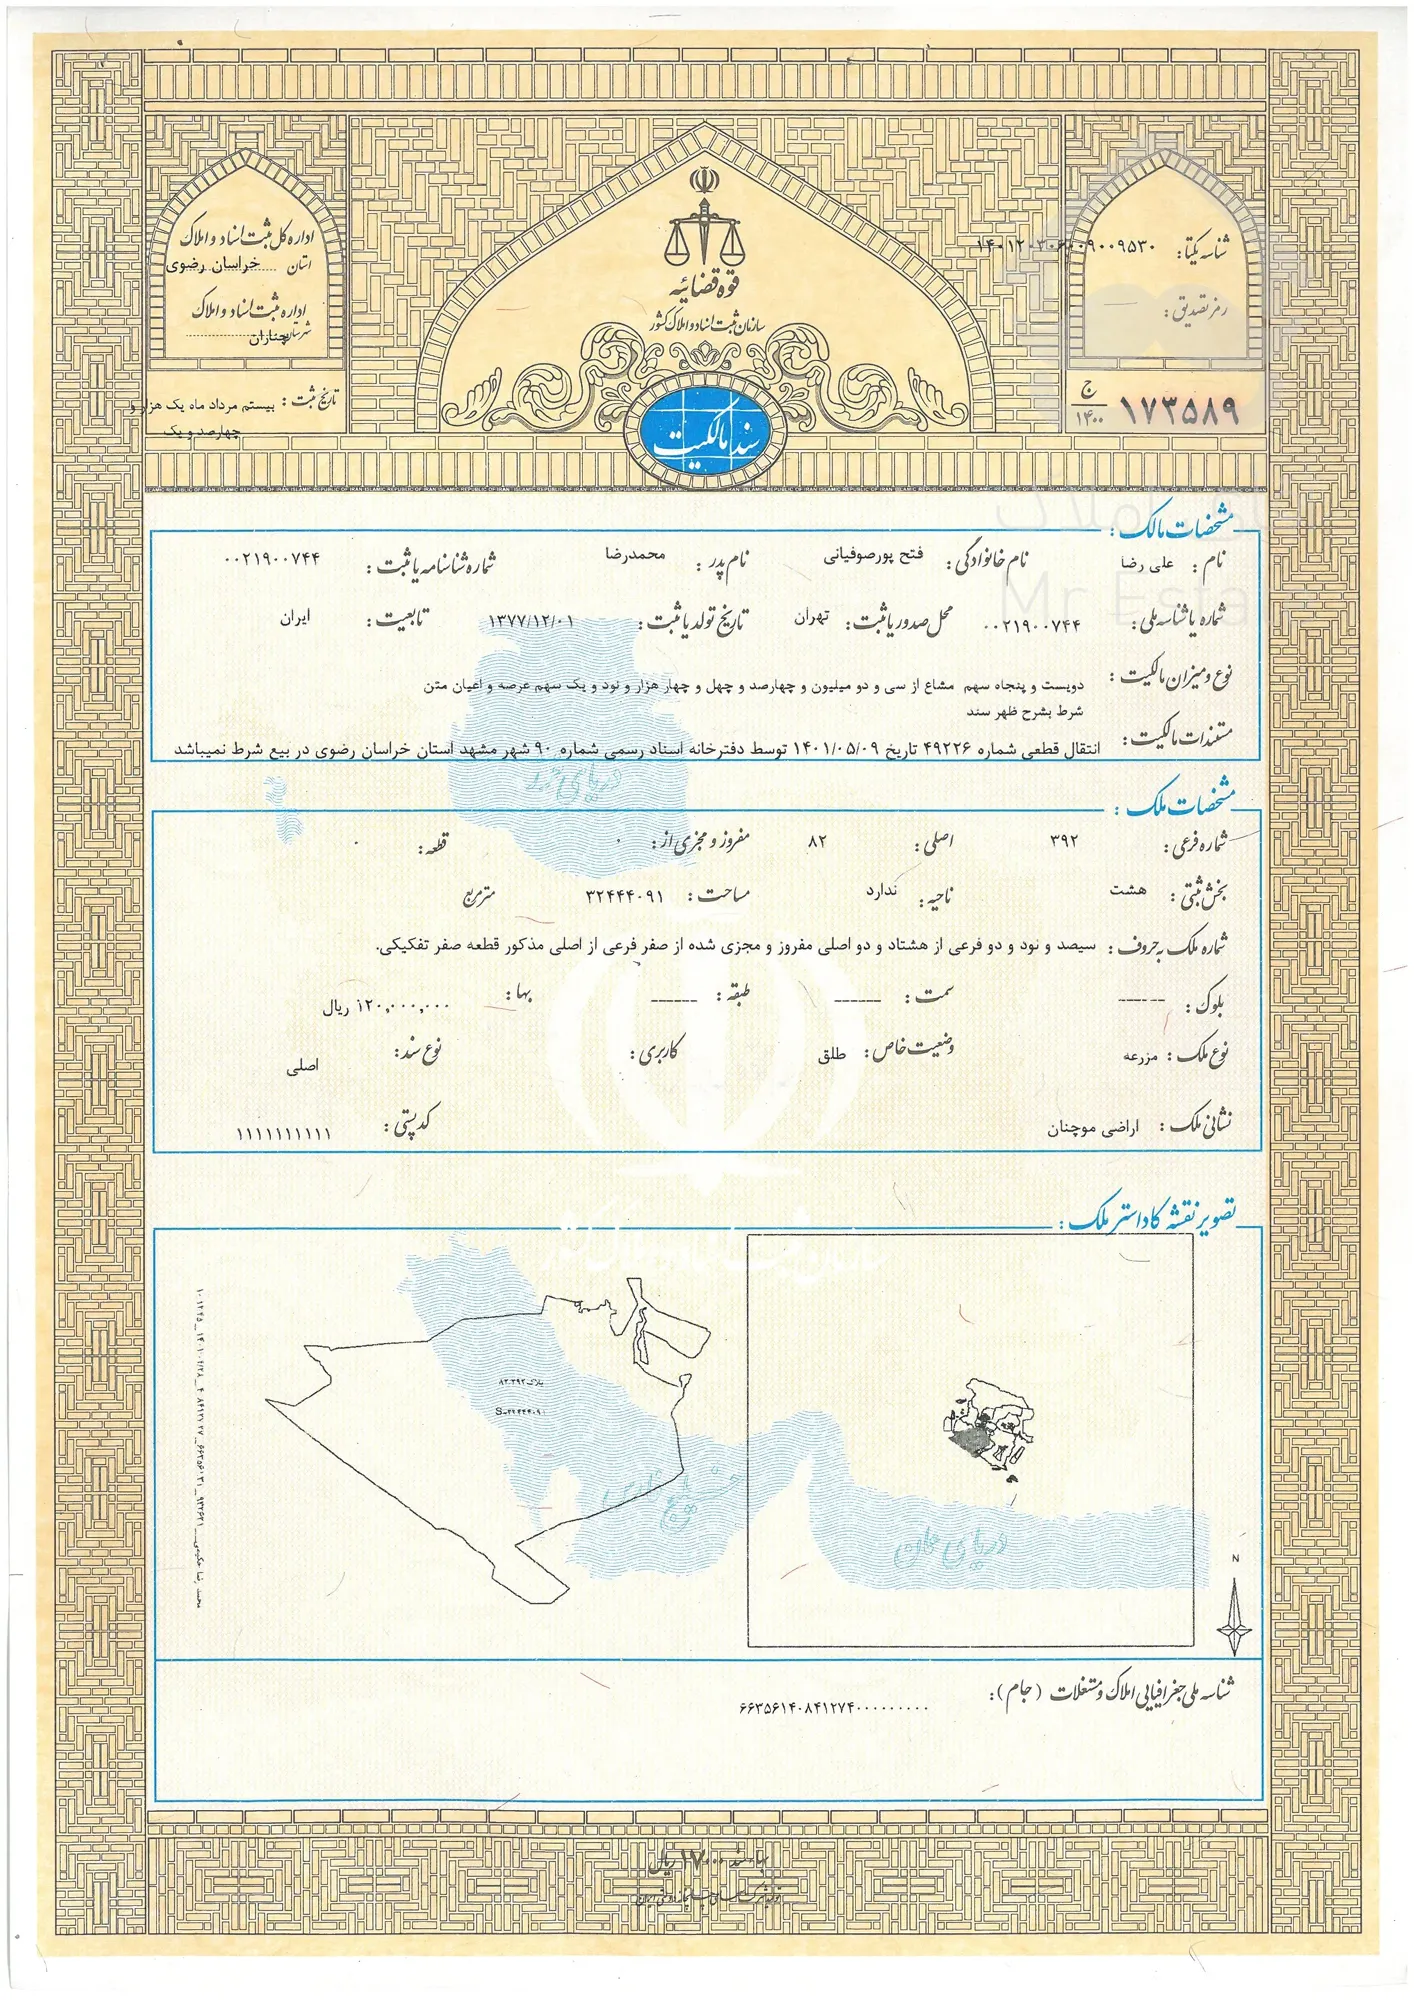 قوه قضائیه
سازمان ثبت اسناد و املاک کشور
سند مالکیت
شناسه یکتا: ۱۴۰۱۲۰۳۰۶۰۰۹۰۰۹۵۳۰
رمز تصدیق:
۱۷۳۵۸۹ ج ۱۴۰۰
اداره کل ثبت اسناد و املاک
استان خراسان رضوی
اداره ثبت اسناد و املاک
شهرستان چناران
تاریخ ثبت: بیستم مرداد ماه یک هزار و
چهارصد و یک
مشخصات مالک:
نام: علی رضا نام خانوادگی: فتح پورصوفیانی نام پدر: محمدرضا شماره شناسنامه یا ثبت: ۰۰۲۱۹۰۰۷۴۴
شماره یا شناسه ملی: ۰۰۲۱۹۰۰۷۴۴ محل صدور یا ثبت: تهران تاریخ تولد یا ثبت: ۱۳۷۷/۱۲/۰۱ تابعیت: ایران
نوع و میزان مالکیت: دویست و پنجاه سهم مشاع از سی و دو میلیون و چهارصد و چهل و چهار هزار و نود و یک سهم عرصه و اعیان متن
شرط بشرح ظهر سند
مستندات مالکیت: انتقال قطعی شماره ۴۹۲۲۶ تاریخ ۱۴۰۱/۰۵/۰۹ توسط دفترخانه اسناد رسمی شماره ۹۰ شهر مشهد استان خراسان رضوی در بیع شرط نمیباشد
مشخصات ملک:
شماره فرعی: ۳۹۲ اصلی: ۸۲ مفروز و مجزی از: ۰ قطعه: ۰
بخش ثبتی: هشت ناحیه: ندارد مساحت: ۳۲۴۴۴۰۹۱ مترمربع
شماره ملک به حروف: سیصد و نود و دو فرعی از هشتاد و دو اصلی مفروز و مجزی شده از صفر فرعی از اصلی مذکور قطعه صفر تفکیکی.
بلوک: ------ سمت: ------ طبقه: ------ بها: ۱۲۰,۰۰۰,۰۰۰ ریال
نوع ملک: مزرعه وضعیت خاص: طلق کاربری: نوع سند: اصلی
نشانی ملک: اراضی موچنان کدپستی: ۱۱۱۱۱۱۱۱۱۱
تصویر نقشه کاداستر ملک:
پلاک ۸۲-۳۹۲
S=۳۲۴۴۴۰۹۱
دریای عمان
N
شناسه ملی جغرافیایی املاک و مستغلات (جام): ۶۶۳۵۶۱۴۰۸۴۱۲۷۴۰۰۰۰۰۰۰۰۰